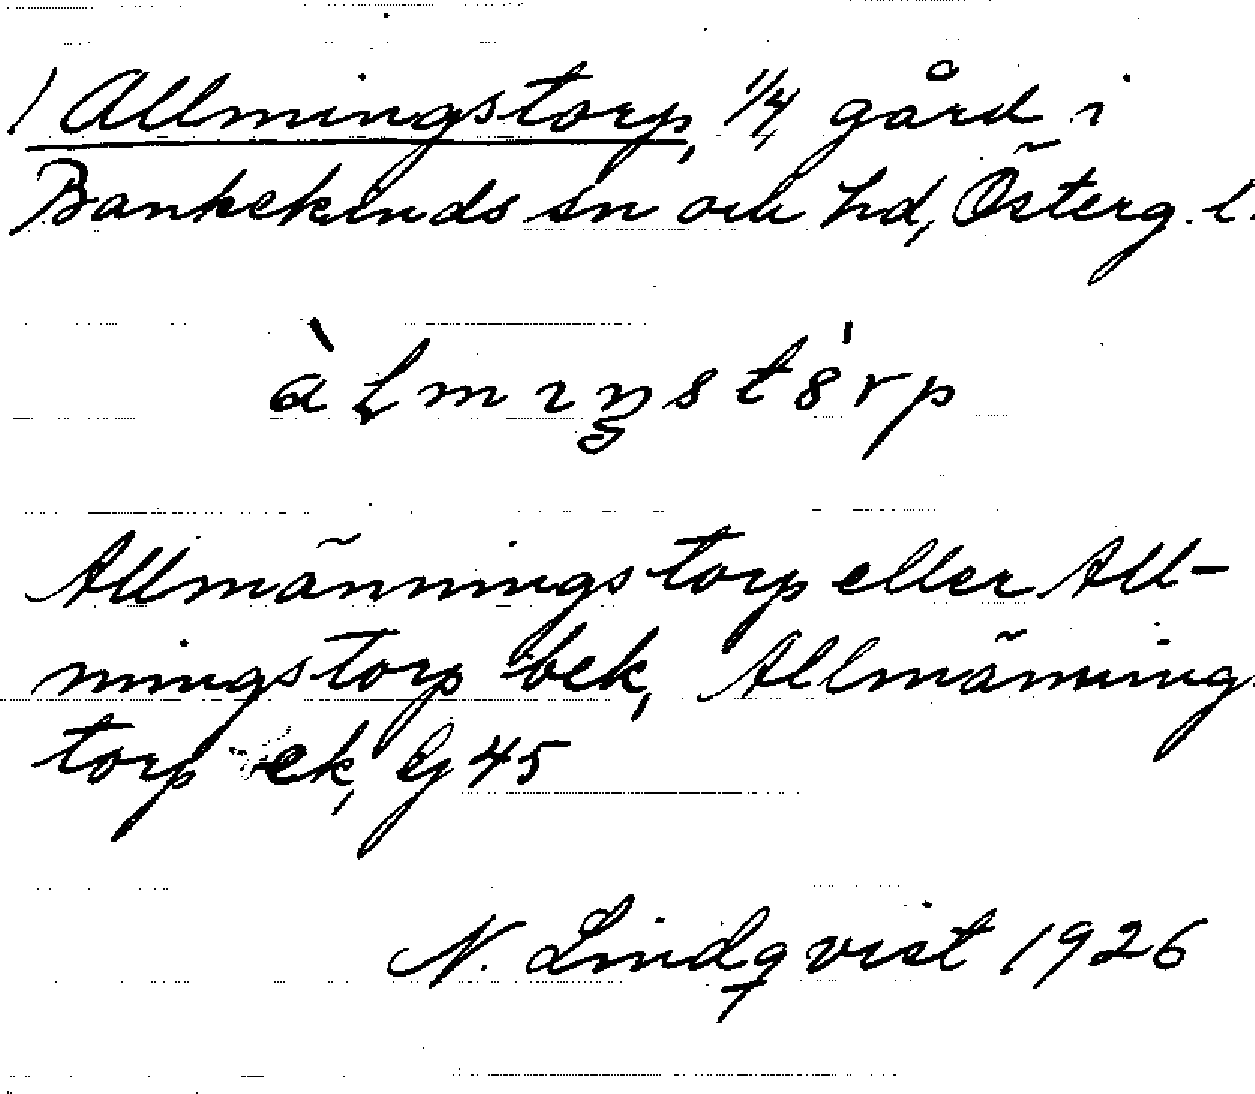 / Allmingstorp, 1/4 gård i
Bankekinds sn och hd, Österg. l.
àlmıŋstó̇rp
Allmänningstorp eller All-
mingstorp bek, Allmännings
torp ek, Gj 45
N. Lindqvist 1926